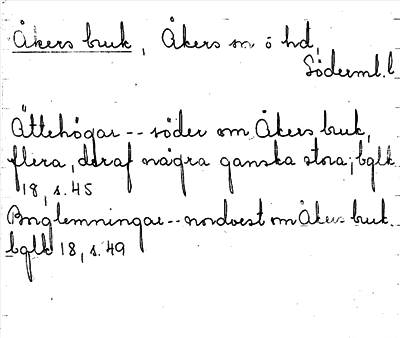 Åkers bruk, Åkers sn ö hd,
Söderml. l
Ättehögar -- söder om Åkers bruk,
flera, deraf några ganska stora; bglk
18, s. 45
Borglemningar -- nordvest om Åkers bruk.
bglk 18, s. 49